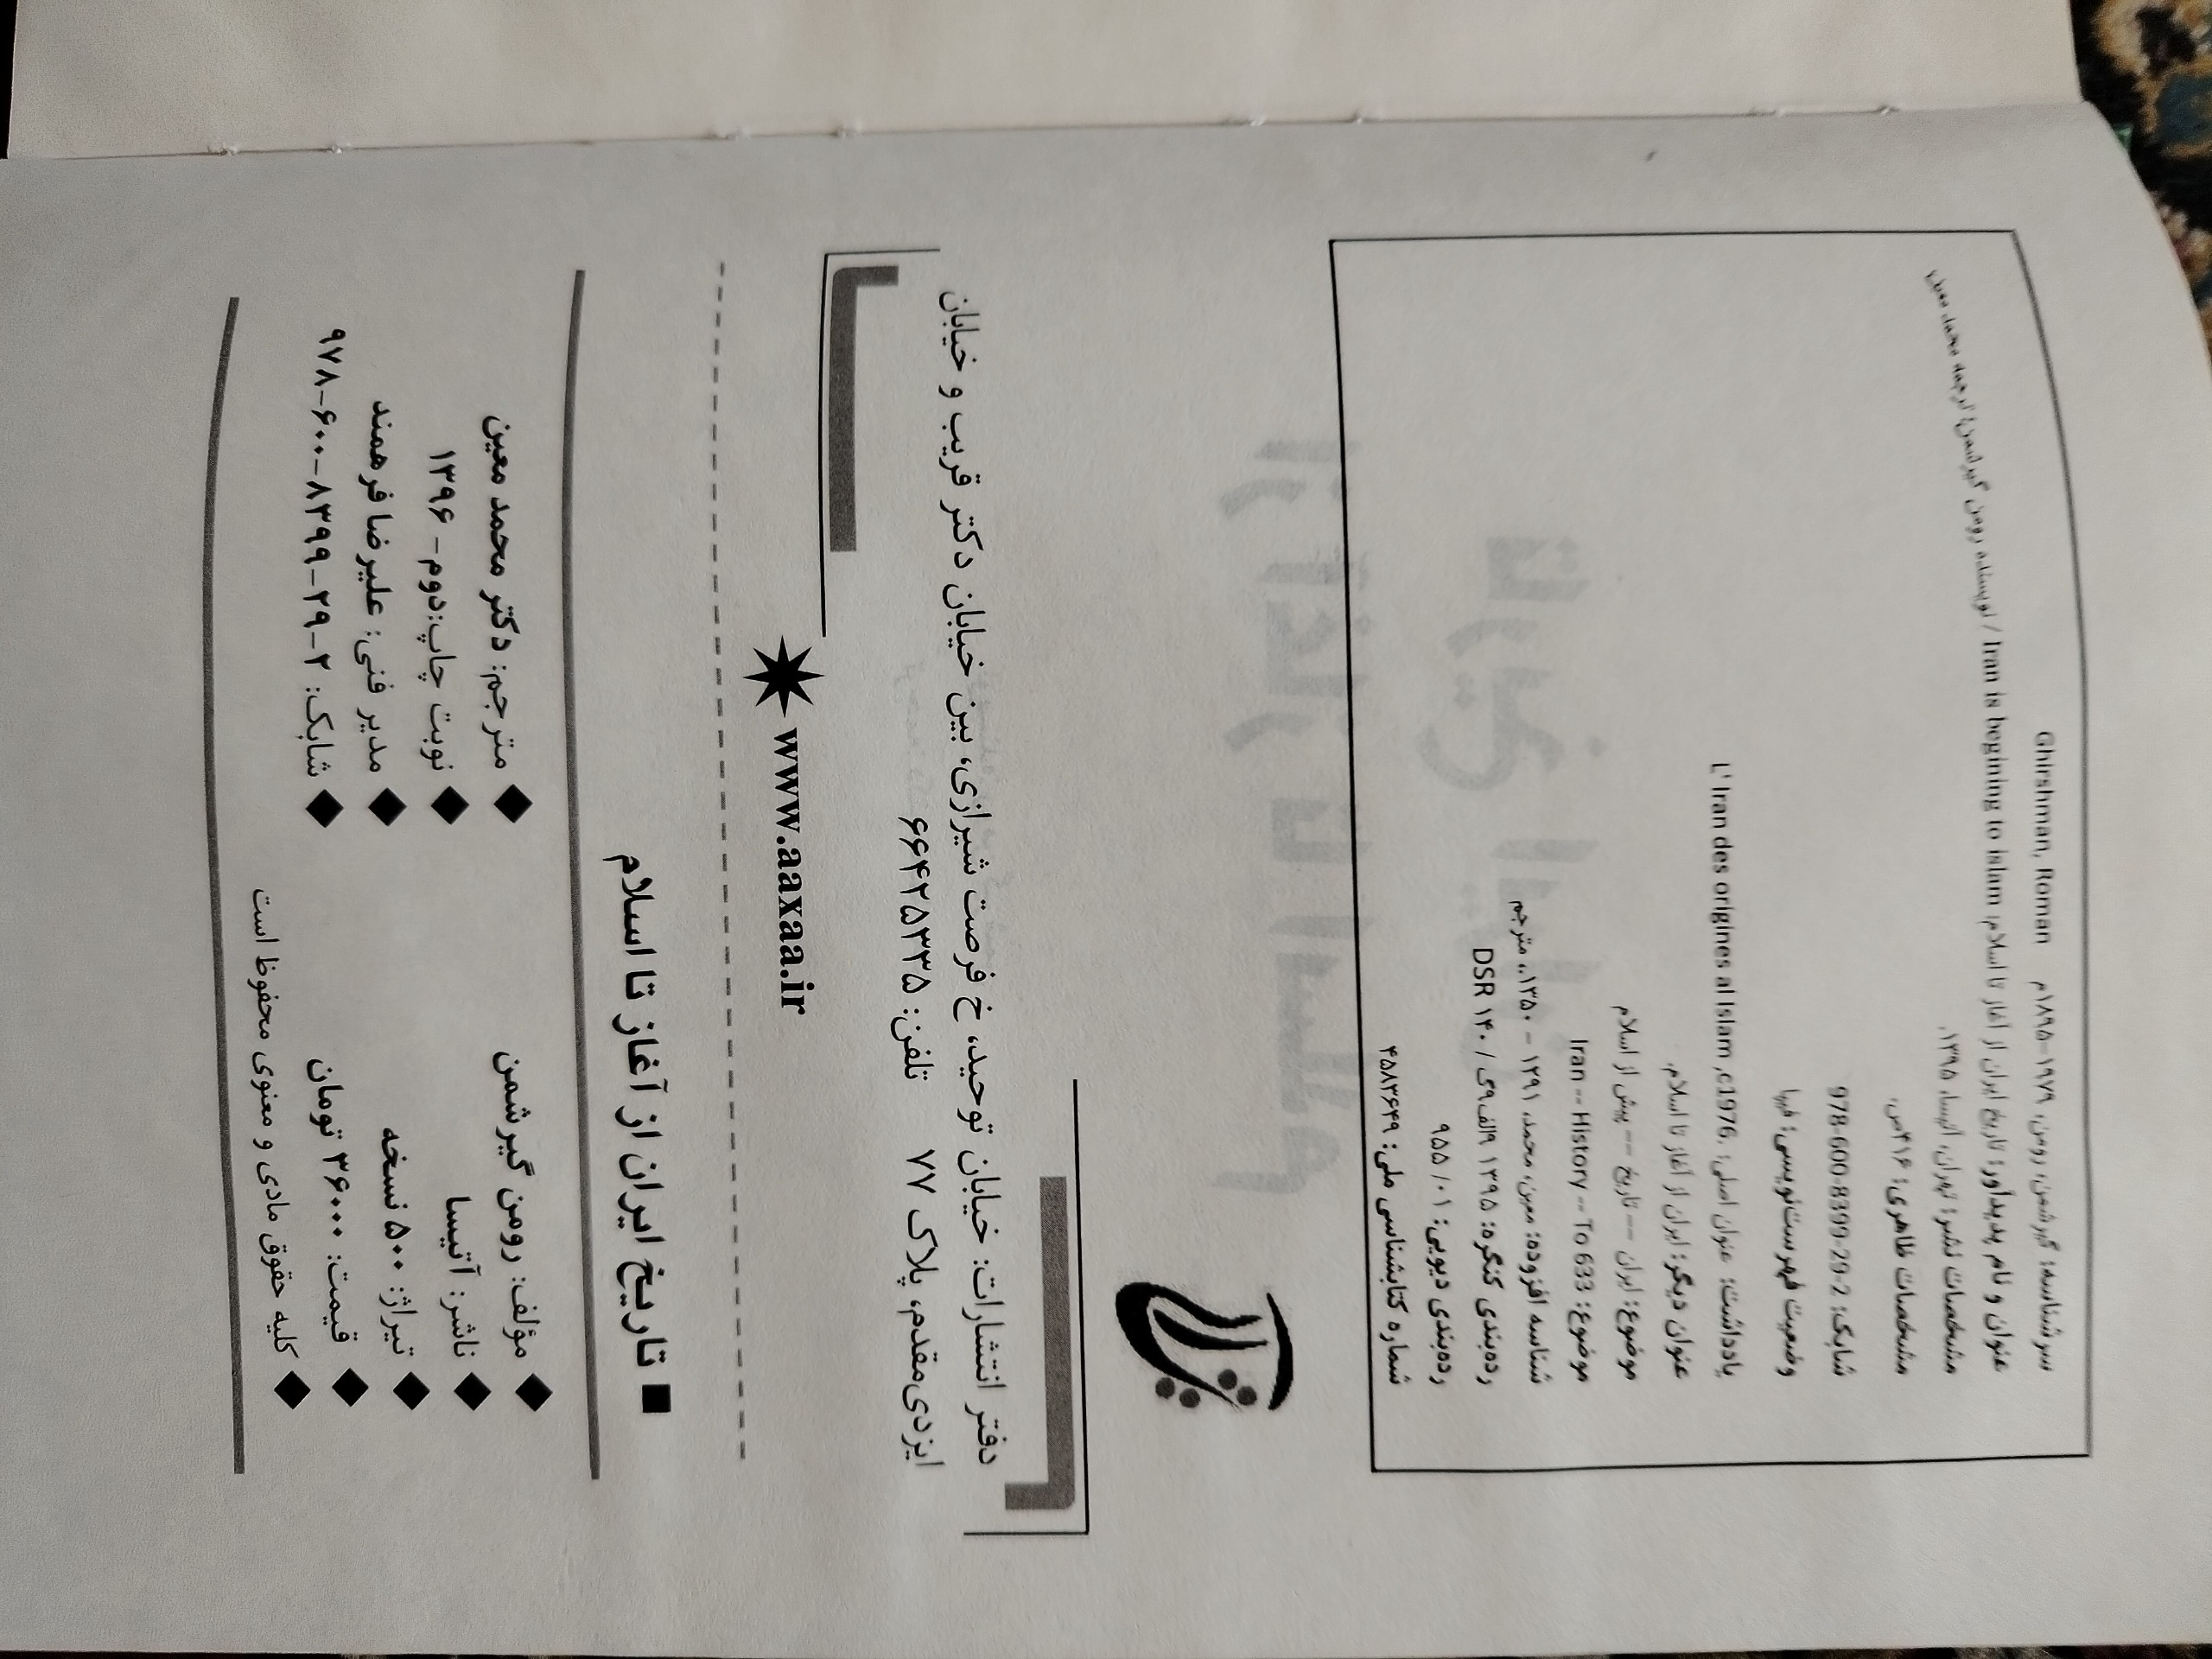 سرشناسه: گیرشمن، رومن، ۱۹۷۹-۱۸۹۵م Ghirshman, Roman
عنوان و نام پدیدآور: تاریخ ایران از آغاز تا اسلام: Iran is begining to islam / نویسنده رومن گیرشمن؛ ترجمه محمد معین.
مشخصات نشر: تهران، آتیسا، ۱۳۹۵.
مشخصات ظاهری: ۴۱۶ص.
شابک: 978-600-8399-29-2
وضعیت فهرست‌نویسی: فیپا
یادداشت: عنوان اصلی: L' Iran des origines al Islam ,c1976.
عنوان دیگر: ایران از آغاز تا اسلام.
موضوع: ایران -- تاریخ -- پیش از اسلام
موضوع: Iran -- History -- To 633
شناسه افزوده: معین، محمد، ۱۲۹۱ - ۱۳۵۰.، مترجم
رده‌بندی کنگره: ۱۳۹۵ ۹الف۹گ / ۱۴۰ DSR
رده‌بندی دیویی: ۹۵۵/۰۱
شماره کتابشناسی ملی: ۴۵۸۳۶۴۹
دفتر انتشارات: خیابان توحید، خ فرصت شیرازی، بین خیابان دکتر قریب و خیابان
ایزدی‌مقدم، پلاک ۷۷ تلفن: ۶۶۴۲۵۳۳۵
www.aaxaa.ir
■ تاریخ ایران از آغاز تا اسلام
◆ مؤلف: رومن گیرشمن ◆ مترجم: دکتر محمد معین
◆ ناشر: آتیسا ◆ نوبت چاپ:دوم- ۱۳۹۶
◆ تیراژ: ۵۰۰ نسخه ◆ مدیر فنی: علیرضا فرهمند
◆ قیمت: ۳۶۰۰۰ تومان ◆ شابک: ۲-۲۹-۸۳۹۹-۶۰۰-۹۷۸
◆ کلیه حقوق مادی و معنوی محفوظ است